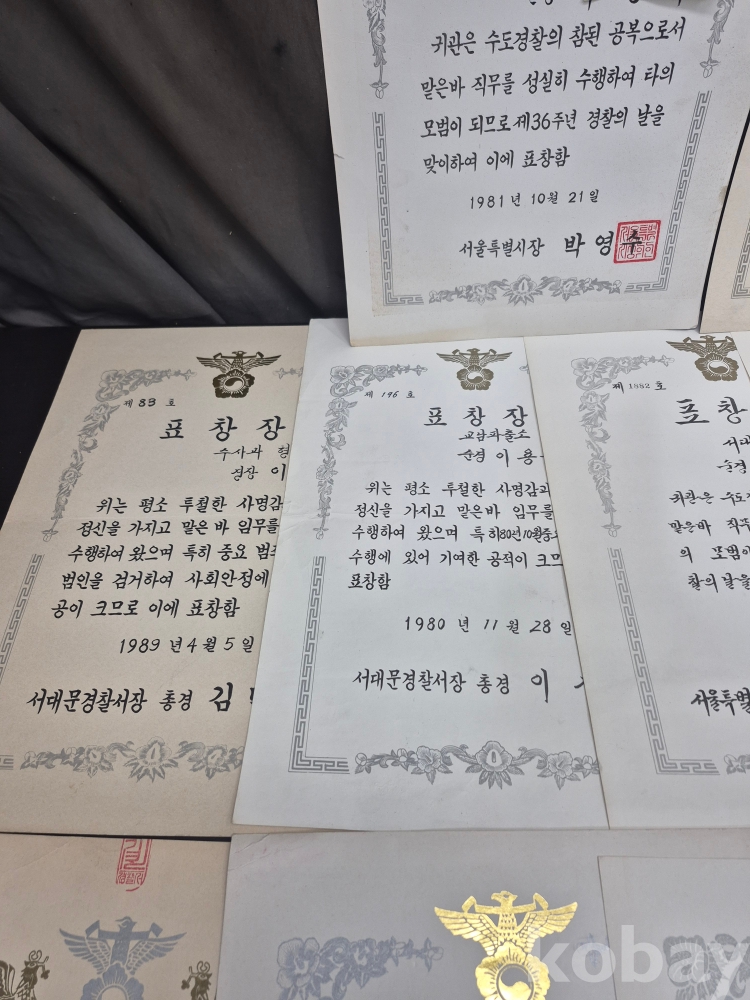 귀관은 수도경찰의 참된 공복으로서
맡은바 직무를 성실히 수행하여 타의
모범이 되므로 제36주년 경찰의 날을
맞이하여 이에 표창함
1981년 10월 21일
서울특별시장 박영수
제 83 호
표창장
수사과 형
경장 이
위는 평소 투철한 사명감
정신을 가지고 맡은 바 임무를
수행하여 왔으며 특히 중요 범죄
범인을 검거하여 사회안정에
공이 크므로 이에 표창함
1989년 4월 5일
서대문경찰서장 총경 김
제 196 호
표창장
교남파출소
순경 이용
위는 평소 투철한 사명감과
정신을 가지고 맡은바 임무를
수행하여 왔으며 특히 80년 10월중
수행에 있어 기여한 공적이 크므
표창함
1980년 11월 28일
서대문경찰서장 총경 이
제 1882 호
표창
서대
순경
귀관은 수도
맡은바 직무
의 모범이
찰의 날을
서울특별
kobay